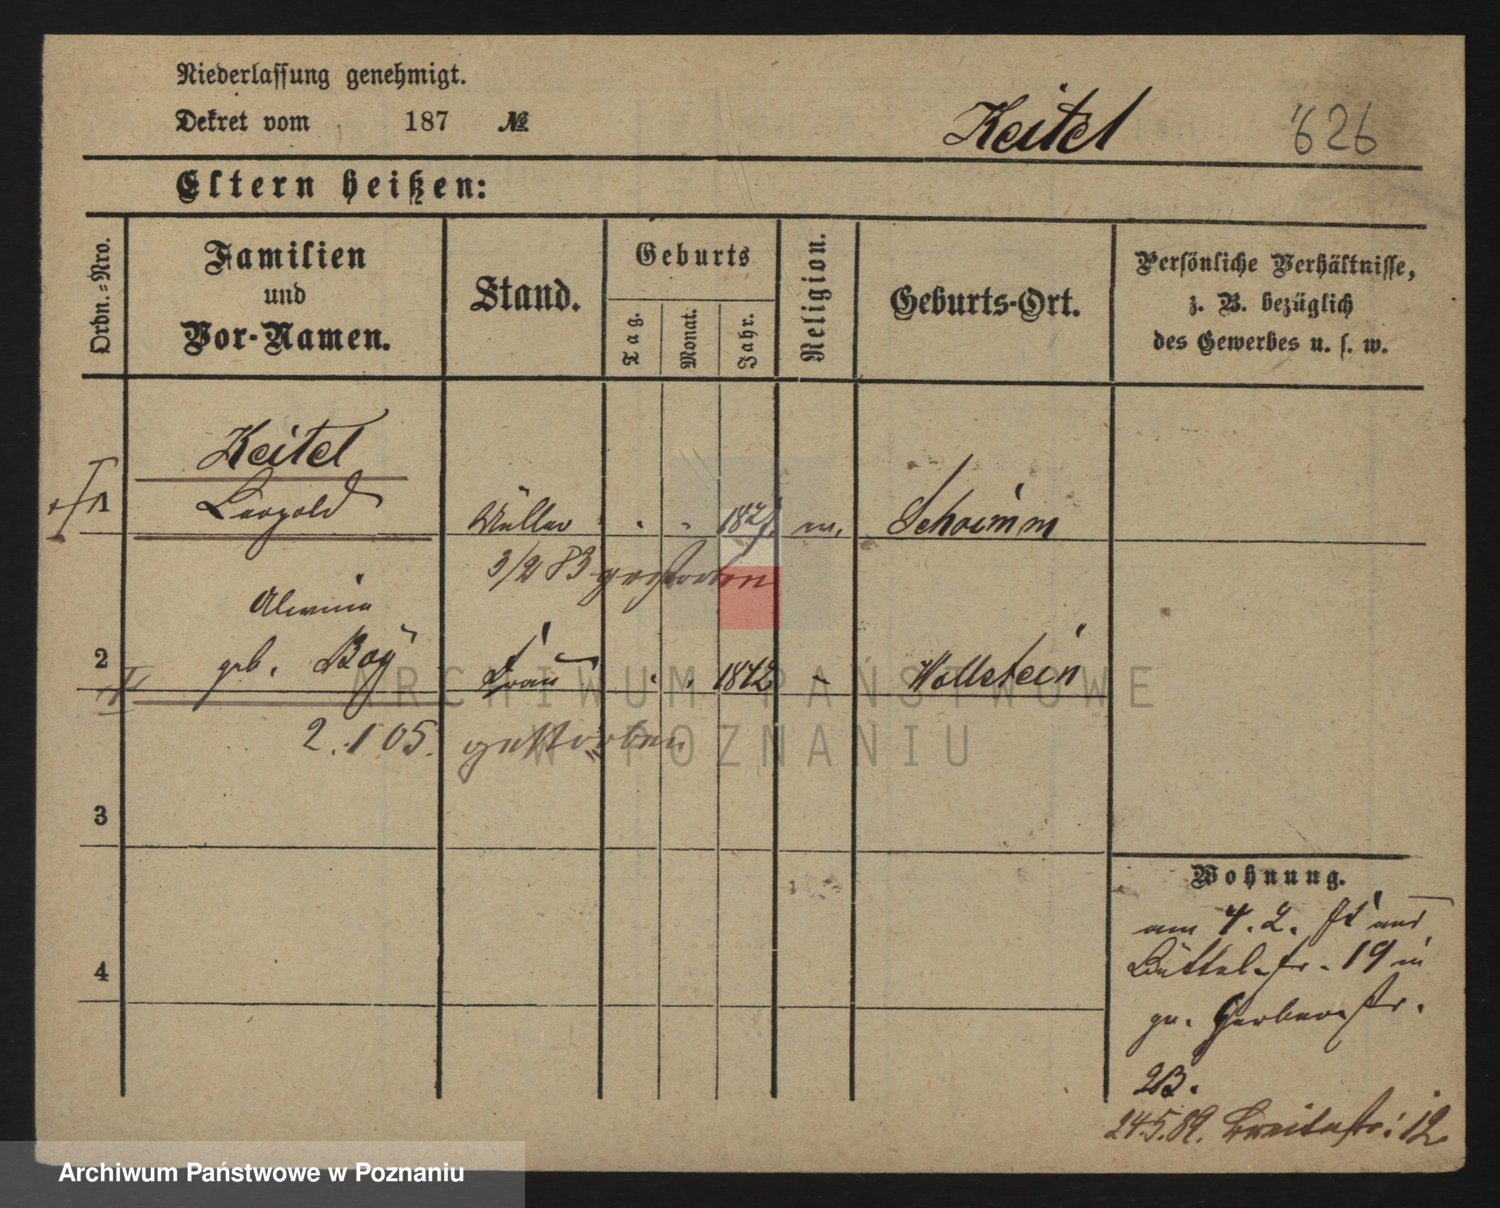 Niederlassung genehmigt.
Dekret vom 187 №
Keitel 626
Eltern heißen:
Ordn.-Nro.
Familien
und
Vor-Namen.
Stand.
Geburts
Tag.
Monat.
Jahr.
Religion.
Geburts-Ort.
Persönliche Verhältnisse,
z. B. bezüglich
des Gewerbes u. s. w.
Keitel
1 Leopold Müller ev. Schrimm
3/2 83 gestorben
geb. Boy
2 Frau 1842 Wollstein
2.1 05. gestorben
3
4
Wohnung.
am 4. 2.
Büttelstr. 19 in
gr. Gerberstr.
24.5.89. Breitestr. 12
ARCHIWUM PAŃSTWOWE
W POZNANIU
Archiwum Państwowe w Poznaniu